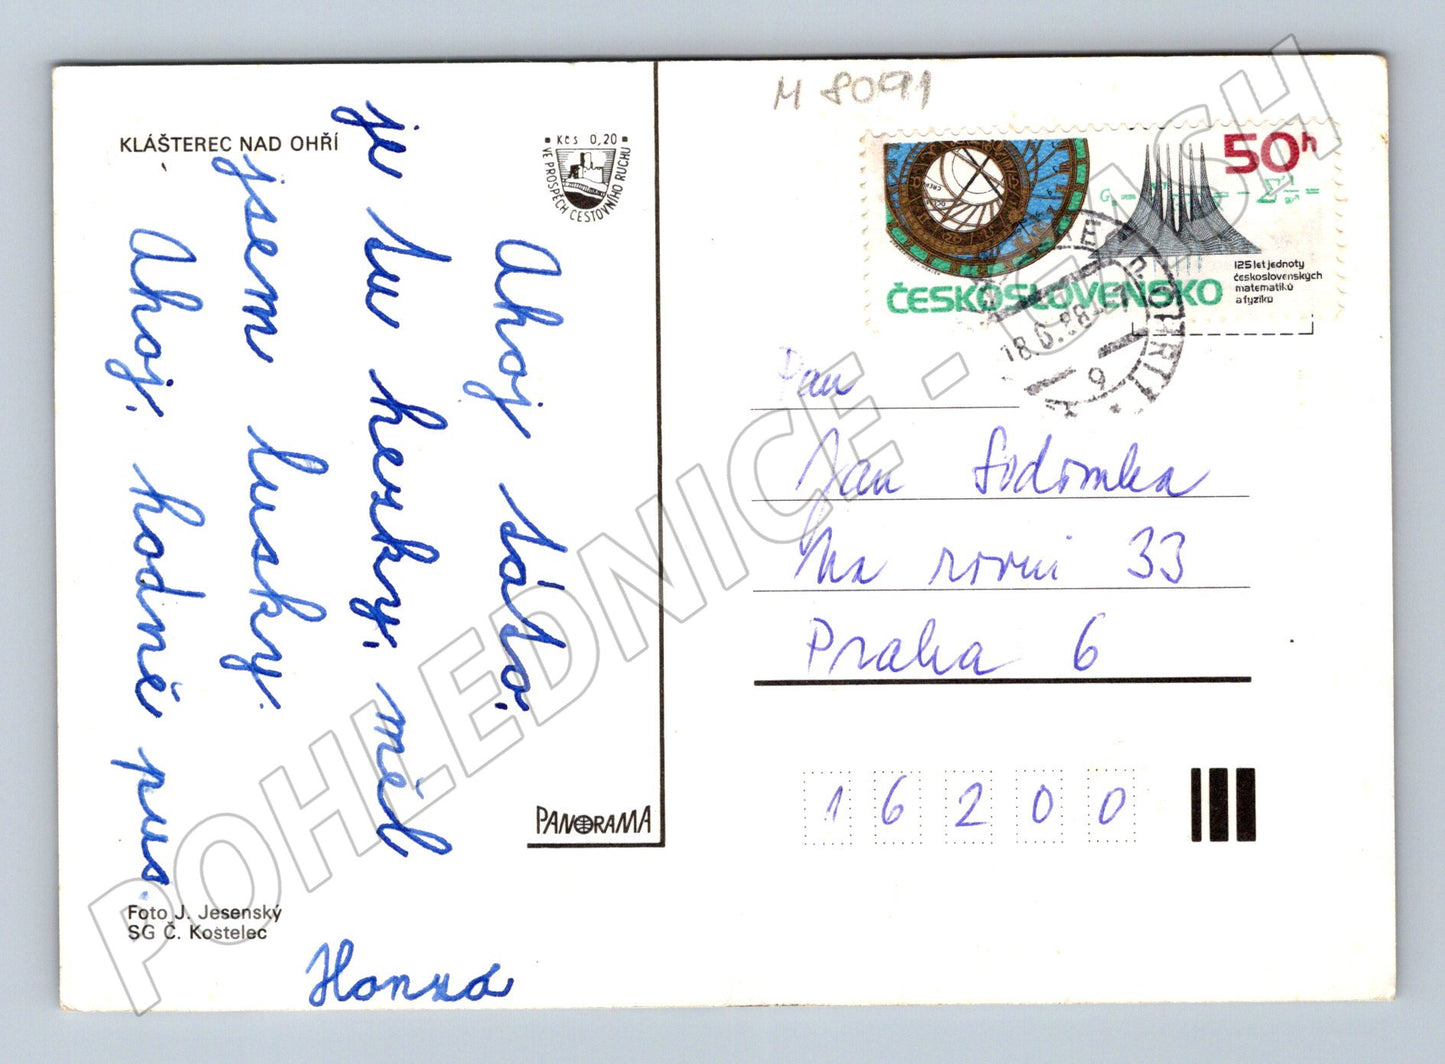 M 8091
KLÁŠTEREC NAD OHŘÍ
Kčs 0,20
VE PROSPĚCH CESTOVNÍHO RUCHU
Ahoj táto,
je tu hezky, měl
jsem lusky.
Ahoj, hodně pus.
Honza
PANORAMA
Foto J. Jesenský
SG Č. Kostelec
50h
125 let jednoty
československých
matematiků
a fyziků
ČESKOSLOVENSKO
18.6.88
Pan
Jan Sodomka
Na rovni 33
Praha 6
16200
POHLEDNICE - CASH